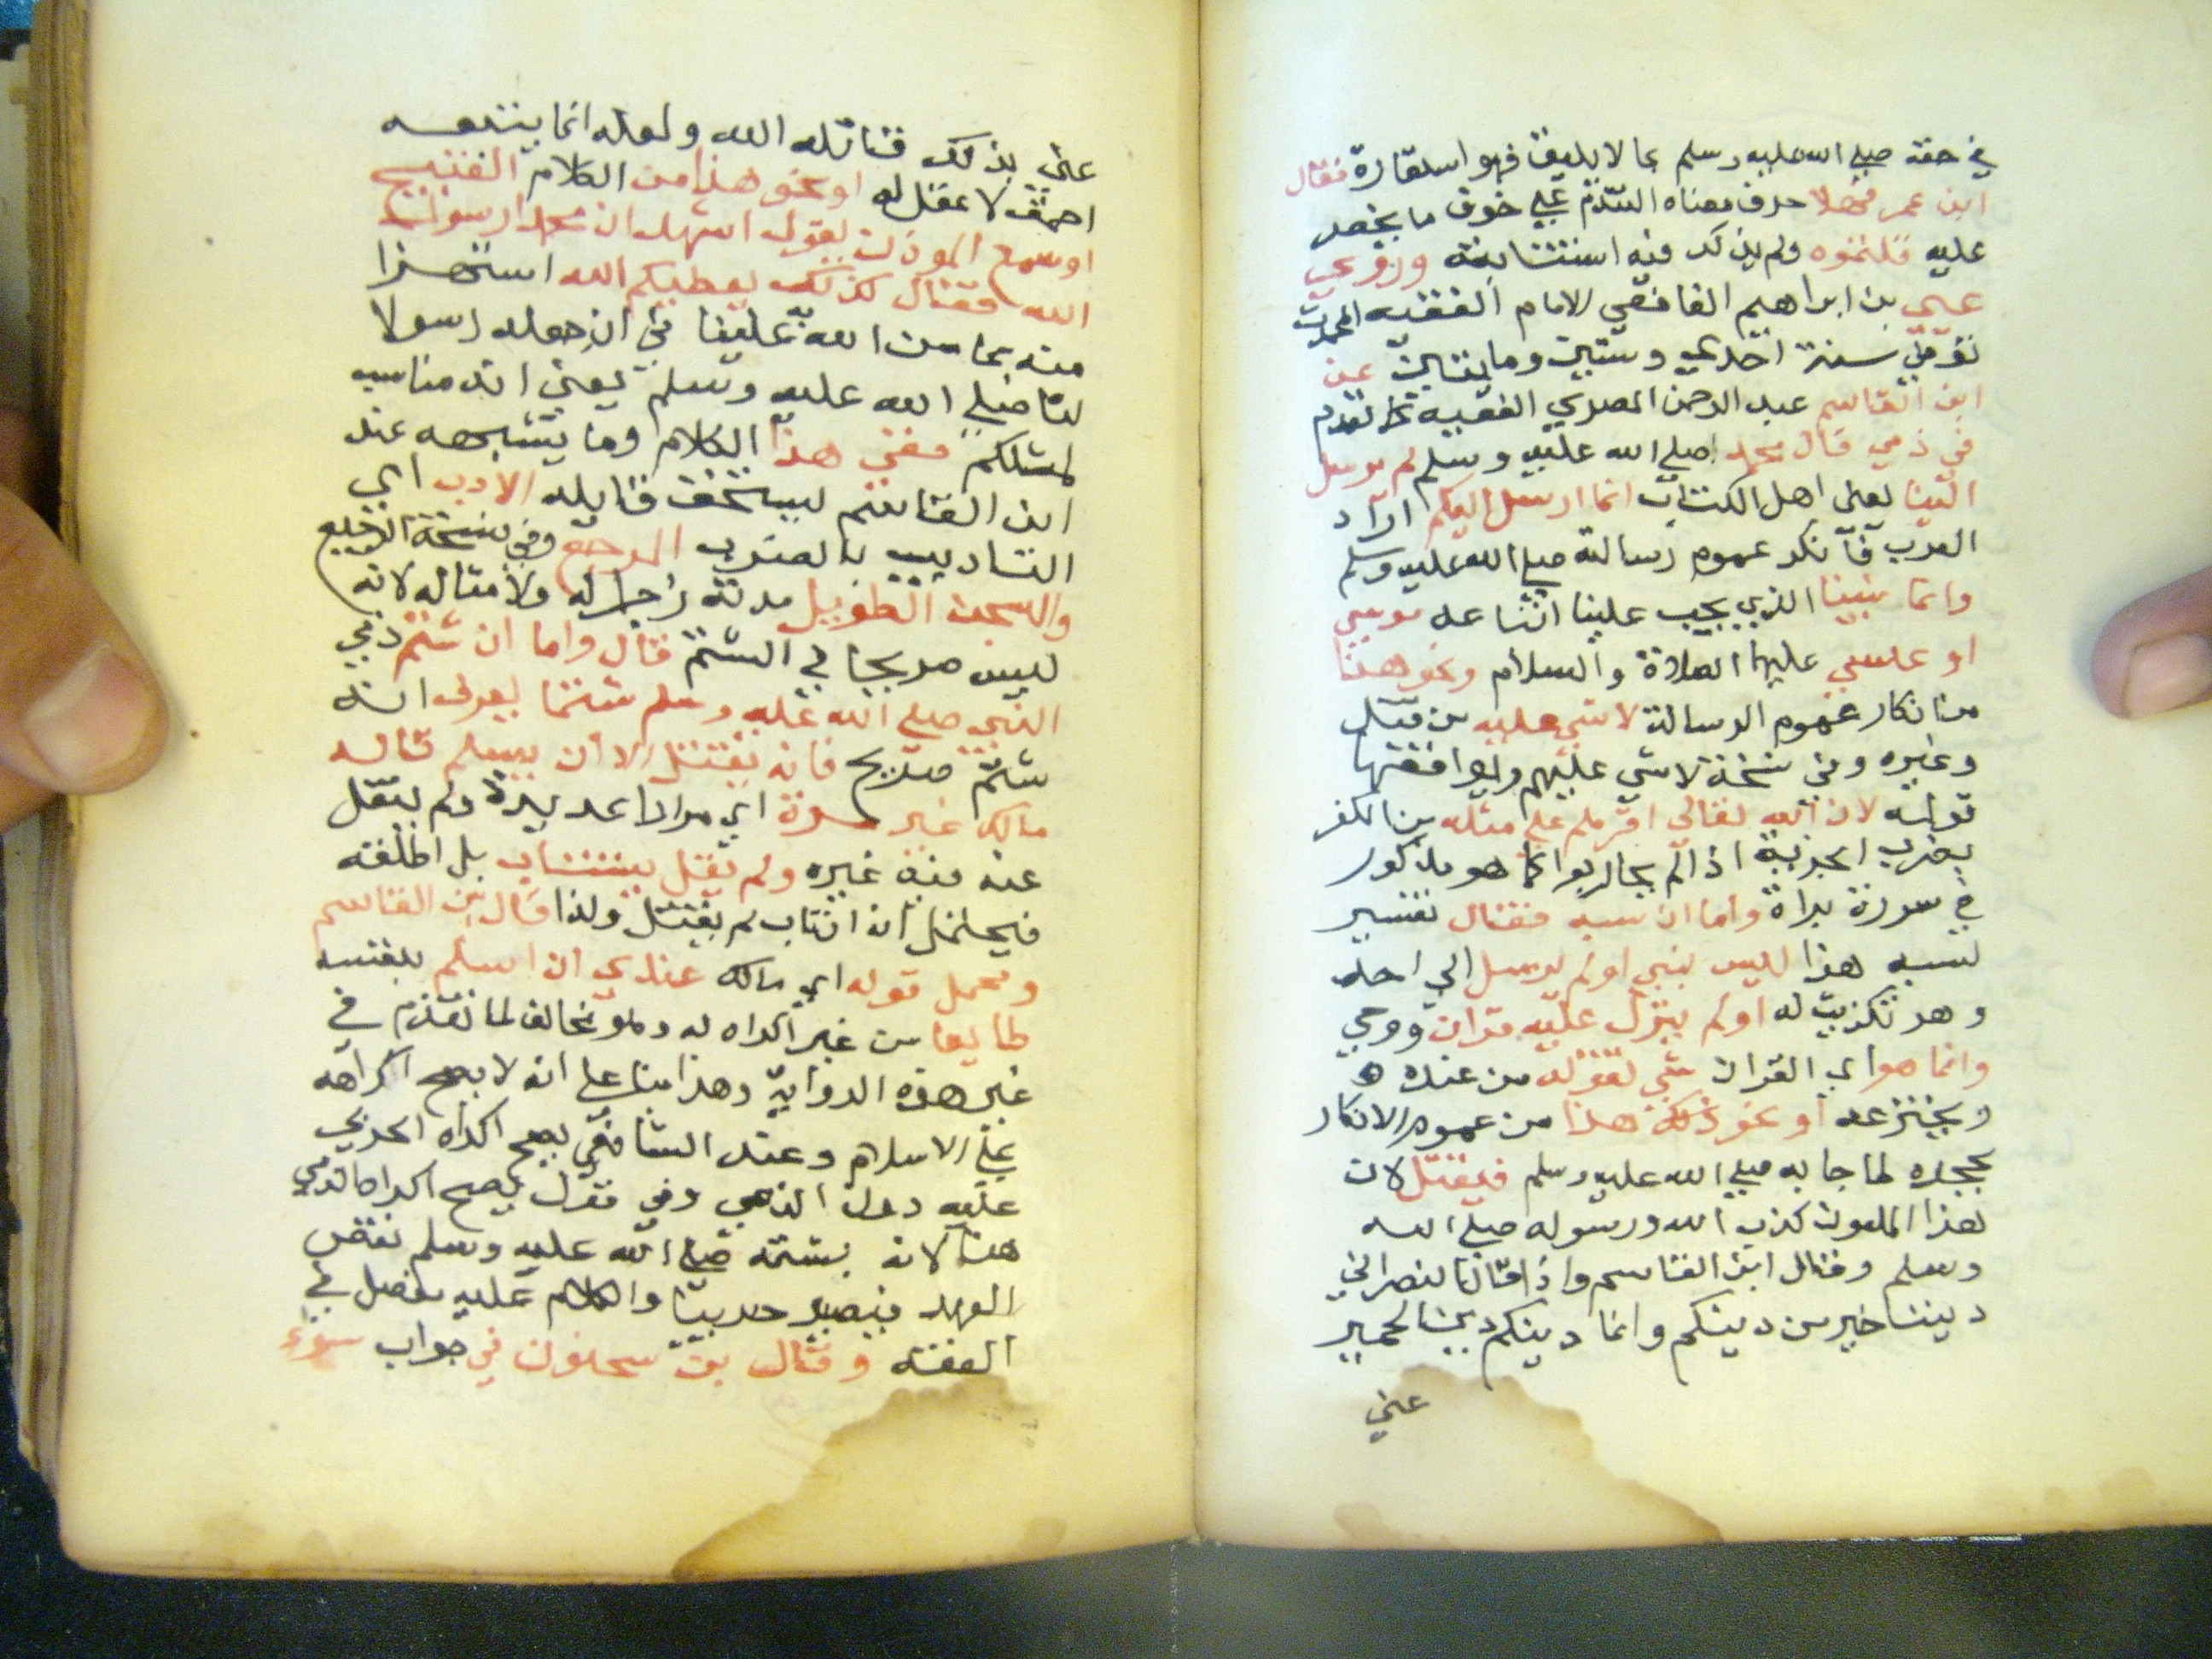 في حقه صلى الله عليه وسلم بما لا يليق فهو استعارة فقال
ابن عمر فهلا حرف معناه التندم على خوف ما بخصر
عليه قتلتموه ولم يذكر فيه استتابة وروى
عيسى بن ابراهيم الغافقي الامام الفقيه المحدث
توفي سنة احدى وستين ومايتين عن
ابن القاسم عبد الرحمن المصري الفقيه كما تقدم
في ذمي قال محمد صلى الله عليه وسلم لم يرسل
الينا يعني اهل الكتاب انما ارسل اليكم اراد
العرب فانكر عموم رسالته صلى الله عليه وسلم
وانما نبينا الذي يجب علينا اتباعه موسى
او عيسى عليهما الصلاة والسلام ونحو هذا
من انكار عموم الرسالة لا شي عليه من قتل
وغيره وفي نسخة لا شي عليهم ويوافقها
قوله لان الله تعالى اقرهم على مثله من الكفر
بضرب الجزية اذا لم يحاربوا كما هو مذكور
في سورة براة واما ان سبه فقال تفسير
لسبه هذا ليس بنبي او لم يرسل الى احد
وهو تكذيب له او لم ينزل عليه قران ووحي
وانما هو اي القران شي تقوله من عنده
ويخترعه او نحو ذلك هذا من عموم الانكار
بجحده لما جا به صلى الله عليه وسلم فيقتل لان
هذا الملعون كذب الله ورسوله صلى الله
وسلم وقال ابن القاسم واذا قال النصراني
ديننا خير من دينكم وانما دينكم دين الحمير
عنى
عنى بذلك قاتله الله ولعله انما يتبعه
احمق لا عقل له او نحو هذا من الكلام القبيح
او سمع الموذن يقول اشهد ان محمدا رسول
الله فقال كذلك يعطيكم الله استهزا
منه بما من الله علينا في ان جعله رسولا
لنا صلى الله عليه وسلم يعني انه مناسب
لمثلكم ففي هذا الكلام وما يشبهه عند
ابن القاسم ليستحق قايله الادب اي
التاديب بالضرب الموجع وفي نسخة الوجيع
والسجن الطويل مدته زجرا له ولامثاله لانه
ليس صريحا في الشتم قال واما ان شتم ذمي
النبي صلى الله عليه وسلم شتما يعرف انه
شتم صريح فانه يقتل الا ان يسلم قاله
مالك غير مرة اي مرارا عديدة ولم ينقل
عنه فيه غيره ولم يقل يستتاب بل اطلقه
فيحتمل انه ان تاب لم يقتل ولذا قال ابن القاسم
ومحمل قوله اي مالك عندي ان اسلم بنفسه
طايعا من غير اكراه له وهو مخالف لما تقدم في
غير هذه الرواية وهذا بناء على انه لا يصح اكراهه
على الاسلام وعند الشافعي يصح اكراه الحربي
عليه دون الذمي وفي قول يصح اكراه الذمي
هنا لانه بشتمه صلى الله عليه وسلم نقض
العهد فيصير حربيا والكلام عليه مفصل في
الفقه وقال بن سحنون في جواب سوء